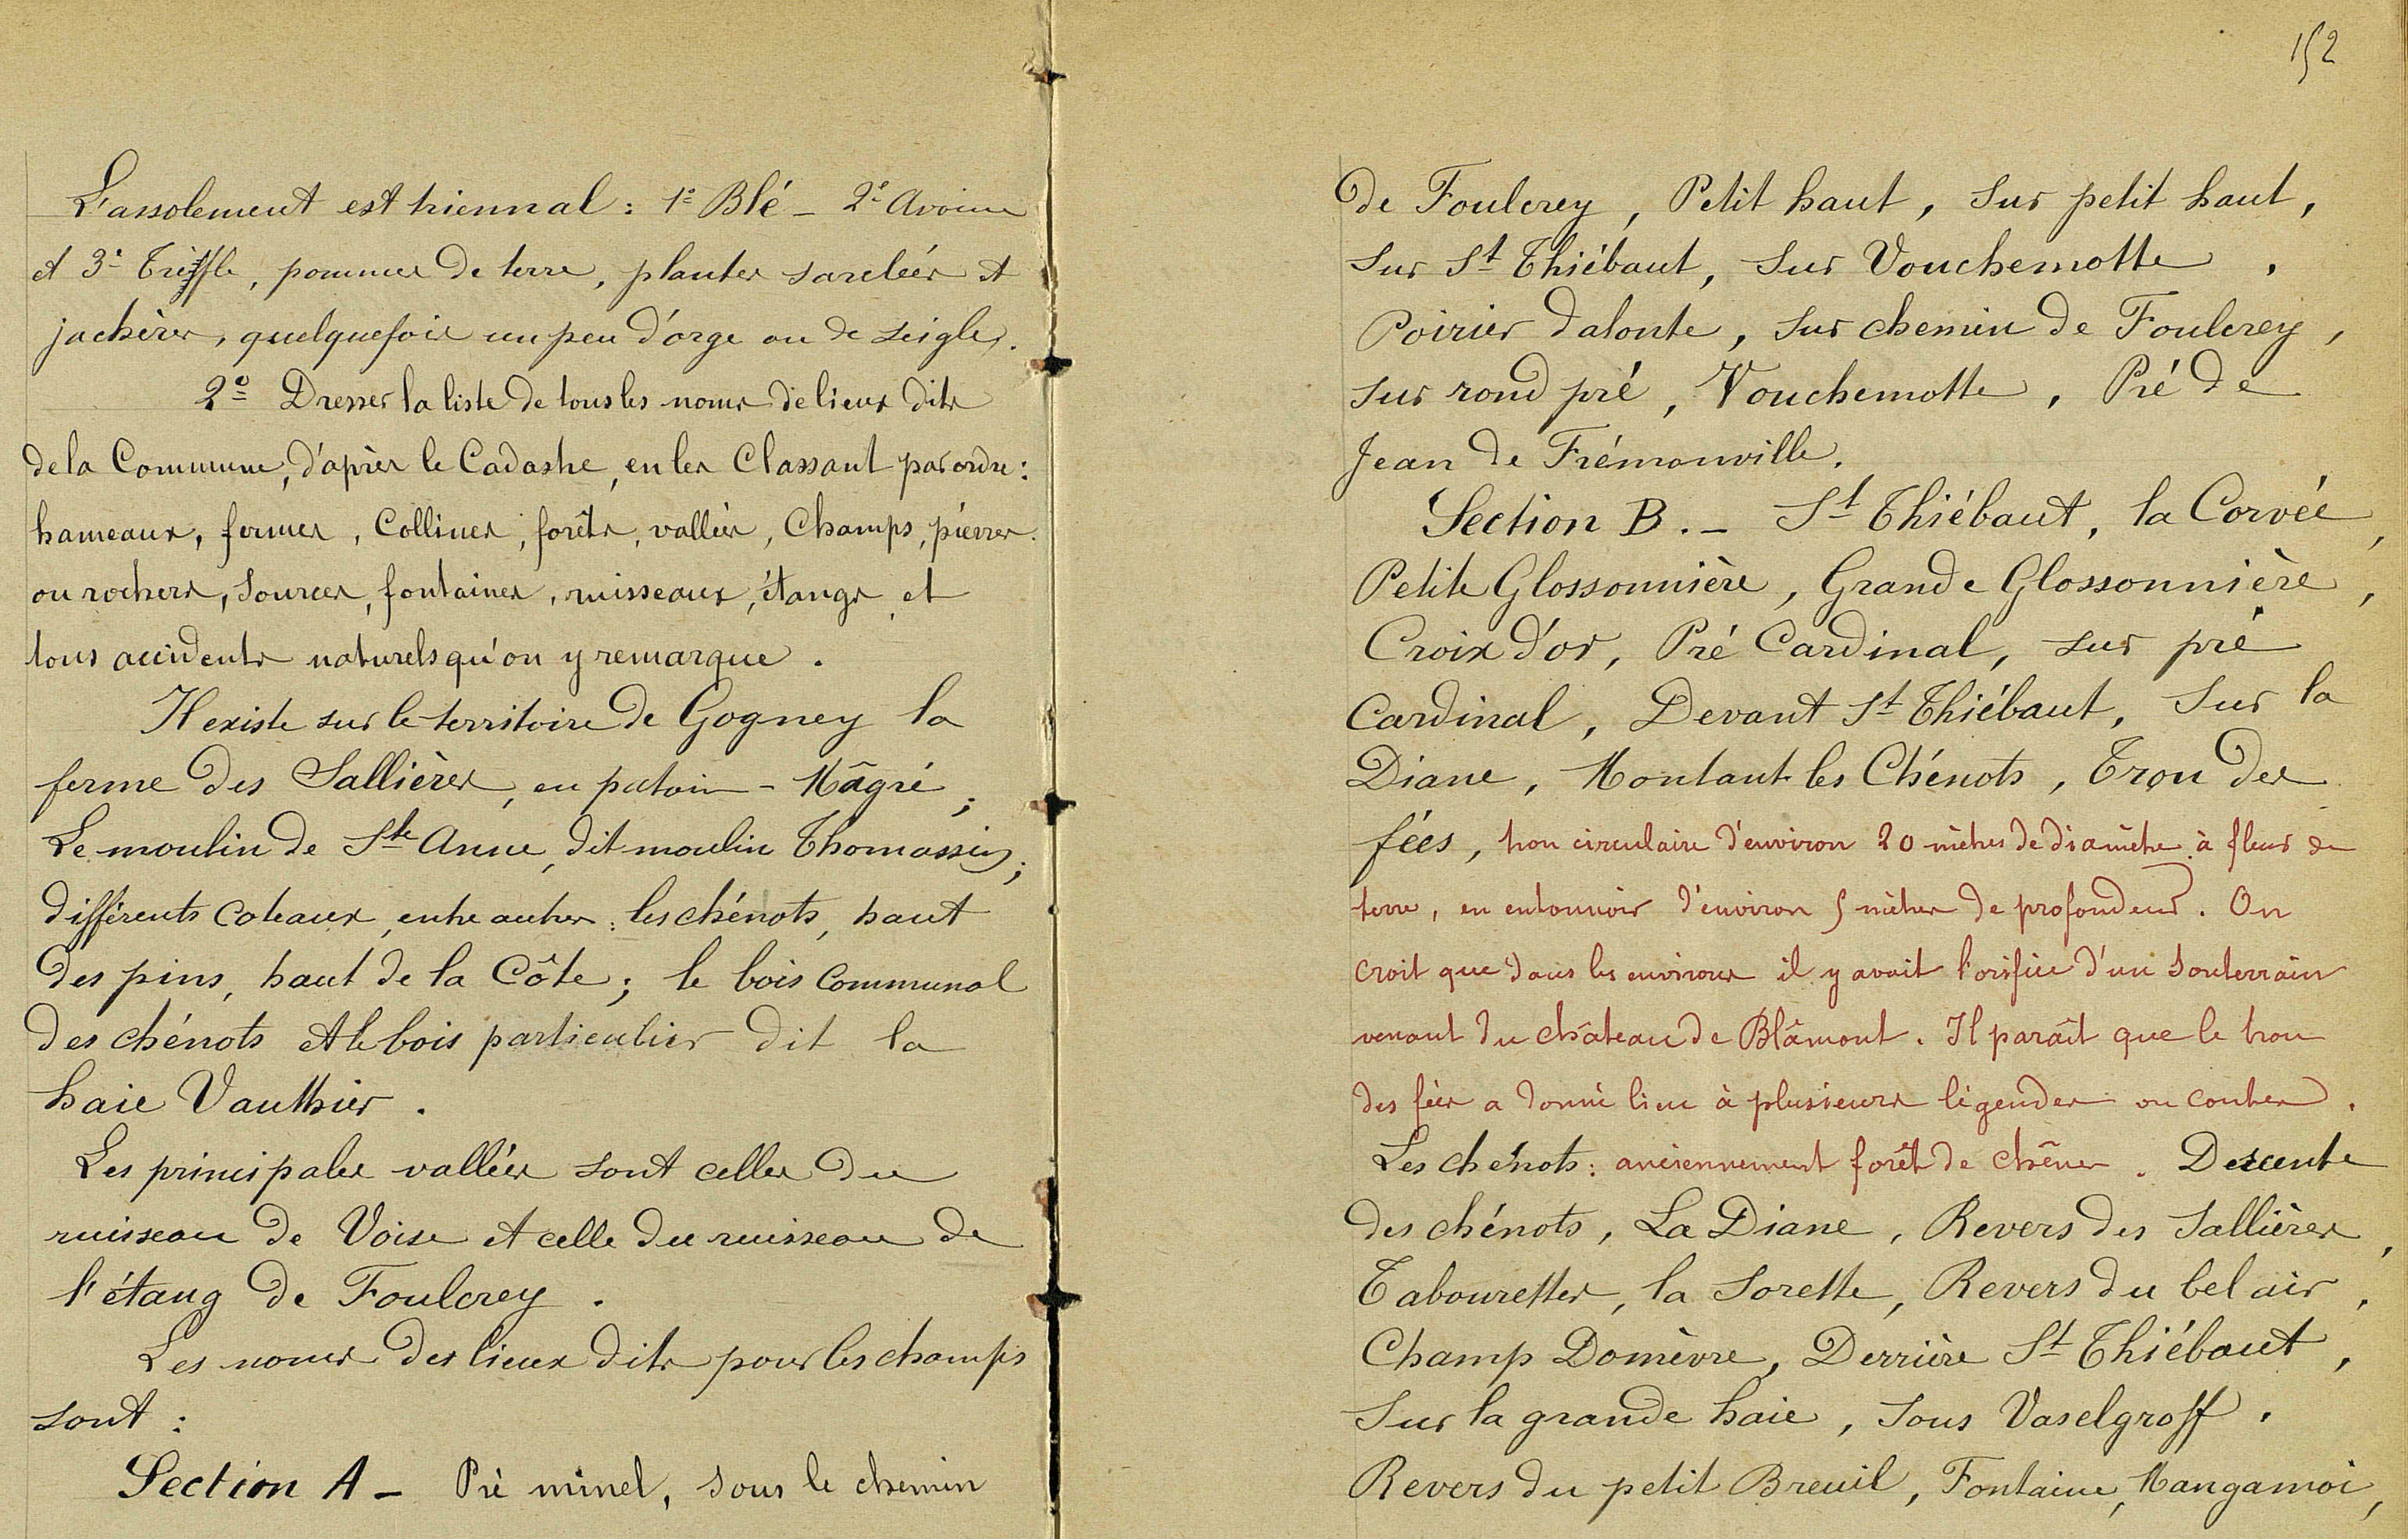 L'assolement est triennal : 1° Blé - 2° Avoine
et 3° Trèffle, pommes de terre, plantes sarclées et
jachères, quelquefois un peu d'orge ou de seigle.
2° Dresser la liste de tous les noms de lieux dits
de la Commune, d'après le Cadastre, en les classant par ordre :
hameaux, fermes, collines, forêts, vallées, champs, pierres
ou rochers, sources, fontaines, ruisseaux, étangs et
tous accidents naturels qu'on y remarque.
Il existe sur le territoire de Gogney la
ferme des Sallières, en patois - Mâgré ;
Le moulin de Ste Anne, dit moulin Thomassin ;
différents coteaux, entre autres : les chénots, haut
des pins, haut de la Côte ; le bois communal
des chénots et le bois particulier dit la
haie Vauthier.
Les principales vallées sont celles du
ruisseau de Voise et celle du ruisseau de
l'étang de Foulcrey.
Les noms des lieux dits pour les champs
sont :
Section A - Pré minel, sous le chemin
152
de Foulcrey, Petit haut, sur petit haut,
sur St Thiébaut, sur Vouchemotte,
Poirier dalonte, sur chemin de Foulcrey,
sur rond pré, Vouchemotte, Pré de
Jean de Frémonville.
Section B. - St Thiébaut, la Corvée,
Petite Glossonnière, Grande Glossonnière,
Croix d'or, Pré Cardinal, sur pré
Cardinal, Devant St Thiébaut, Sur la
Diane, Montant les Chénots, Trou des
fées, trou circulaire d'environ 20 mètres de diamètre à fleur de
terre, en entonnoir d'environ 5 mètres de profondeur. On
croit que dans les environs il y avait l'orifice d'un souterrain
venant du château de Blâmont. Il paraît que le trou
des fées a donné lieu à plusieurs légendes ou contes.
Les chénots : anciennement forêt de chênes. Descente
des chénots, La Diane, Revers des Sallières,
Tabourettes, la Sorette, Revers du bel air,
Champ Domèvre, Derrière St Thiébaut,
Sur la grande haie, Sous Vaselgroff.
Revers du petit Breuil, Fontaine, Mangamoi,